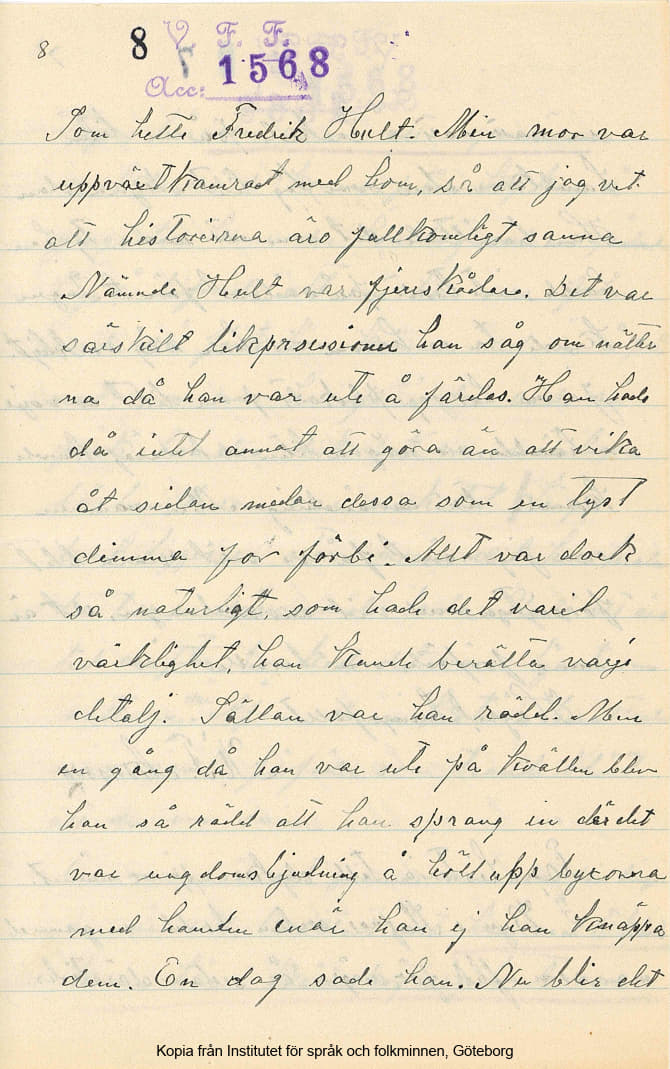 8
8 V. F. F.
Acc: 1568
Som hette Fredrik Hult. Min mor var
uppväxtkamrat med hom, så att jag vet
att historierna äro fullkomligt sanna
Nämnde Hult var fjerrskådare. Det var
särskilt likprosessioner han såg om nätter
na då han var ute å färdas. Han hade
då intet annat att göra än att vika
åt sidan medan dessa som en tyst
dimma for förbi. Allt var dock
så naturligt, som hade det varit
värklighet, han kunde berätta varje
detalj. Sällan var han rädd. Men
en gång då han var ute på kvällen blev
han så rädd att han sprang in där det
var ungdomsbjudning å höll upp byxorna
med handen enär han ej han knäppa
dem. En dag sade han. Nu blir det
Kopia från Institutet för språk och folkminnen, Göteborg